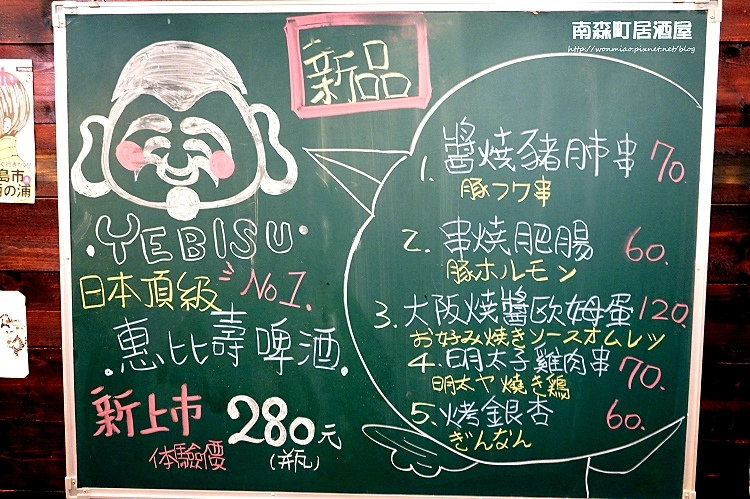 南森町居酒屋
http://wonmiao.pixnet.net/blog
新品
YEBISU
日本頂級 No1.
惠比壽啤酒
新上市
体驗價
280元
(瓶)
1. 醬燒豬肺串 70.
豚フワ串
2. 串燒肥腸 60.
豚ホルモン
3. 大阪燒醬歐姆蛋 120.
お好み焼きソースオムレツ
4. 明太子雞肉串 70.
明太ヤ焼き鶏
5. 烤銀杏 60.
ぎんなん
島市
の浦